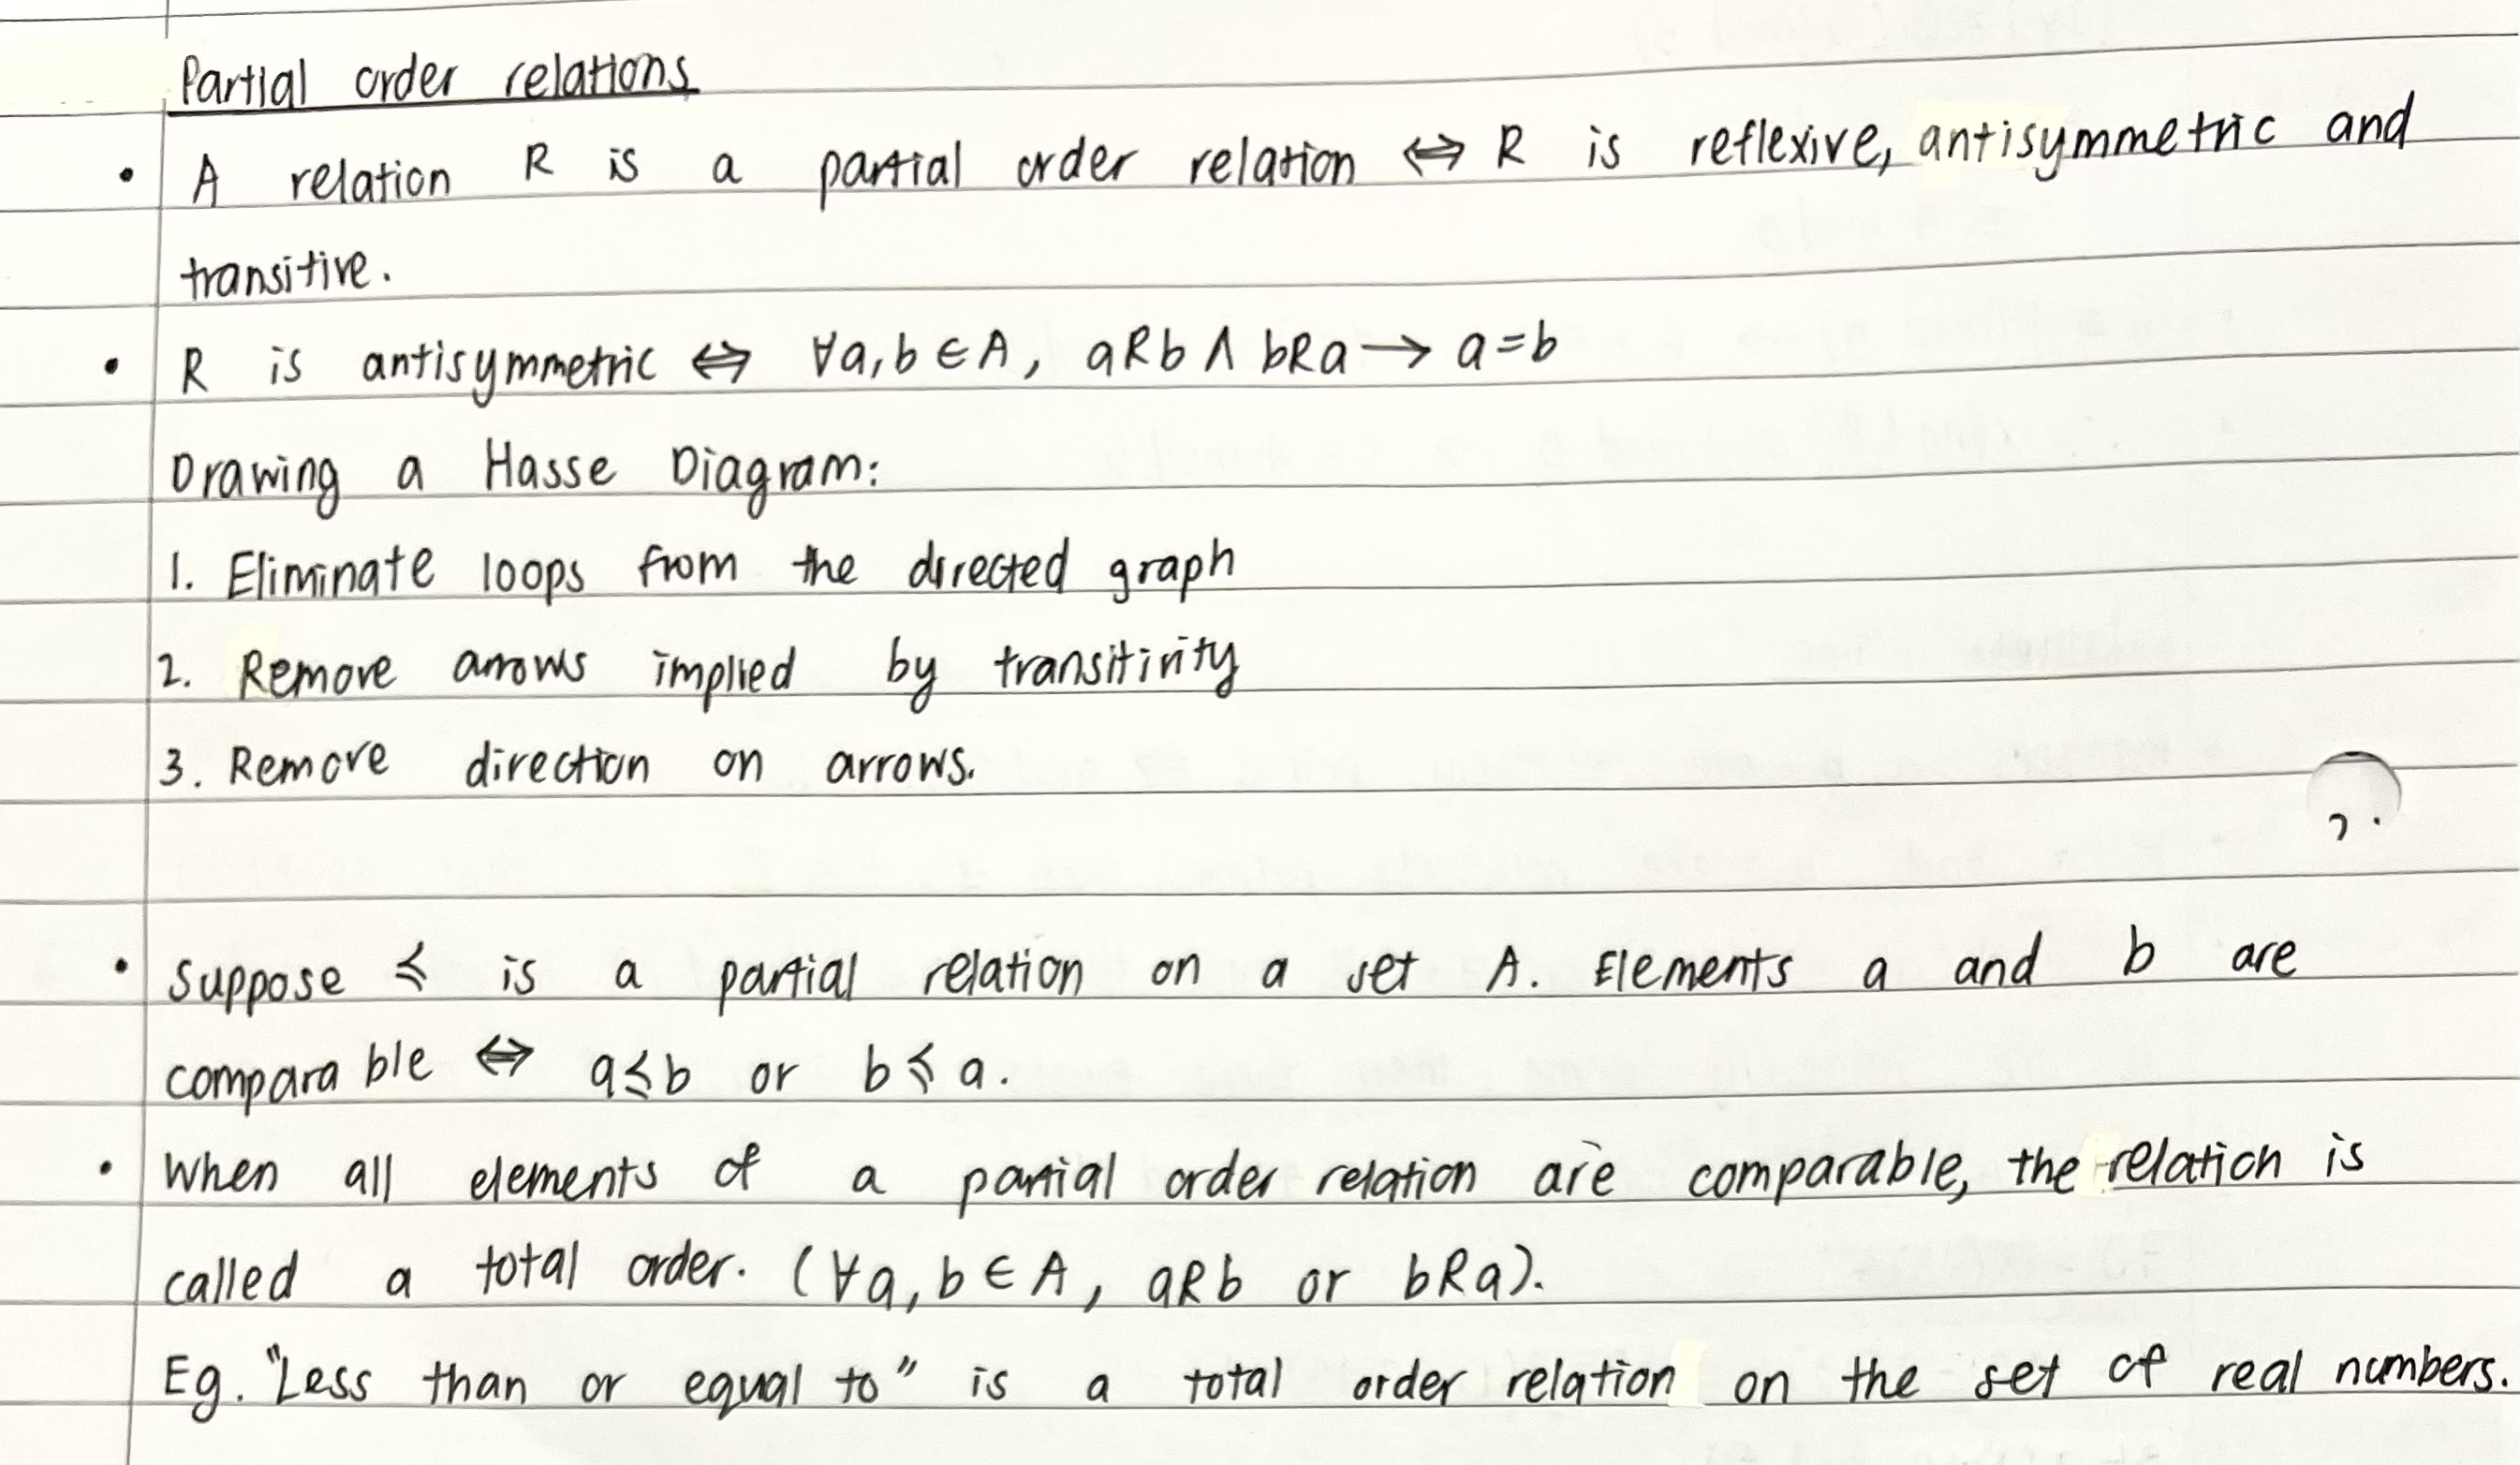 Partial order relations
• A relation R is a partial order relation ⇔ R is reflexive, antisymmetric and
transitive.
• R is antisymmetric ⇔ ∀a,b ∈ A, aRb ∧ bRa → a=b
Drawing a Hasse Diagram:
1. Eliminate loops from the directed graph
2. Remove arrows implied by transitivity
3. Remove direction on arrows.
• Suppose ≼ is a partial relation on a set A. Elements a and b are
comparable ⇔ a≼b or b≼a.
• When all elements of a partial order relation are comparable, the relation is
called a total order. (∀a,b ∈ A, aRb or bRa).
Eg. "Less than or equal to" is a total order relation on the set of real numbers.